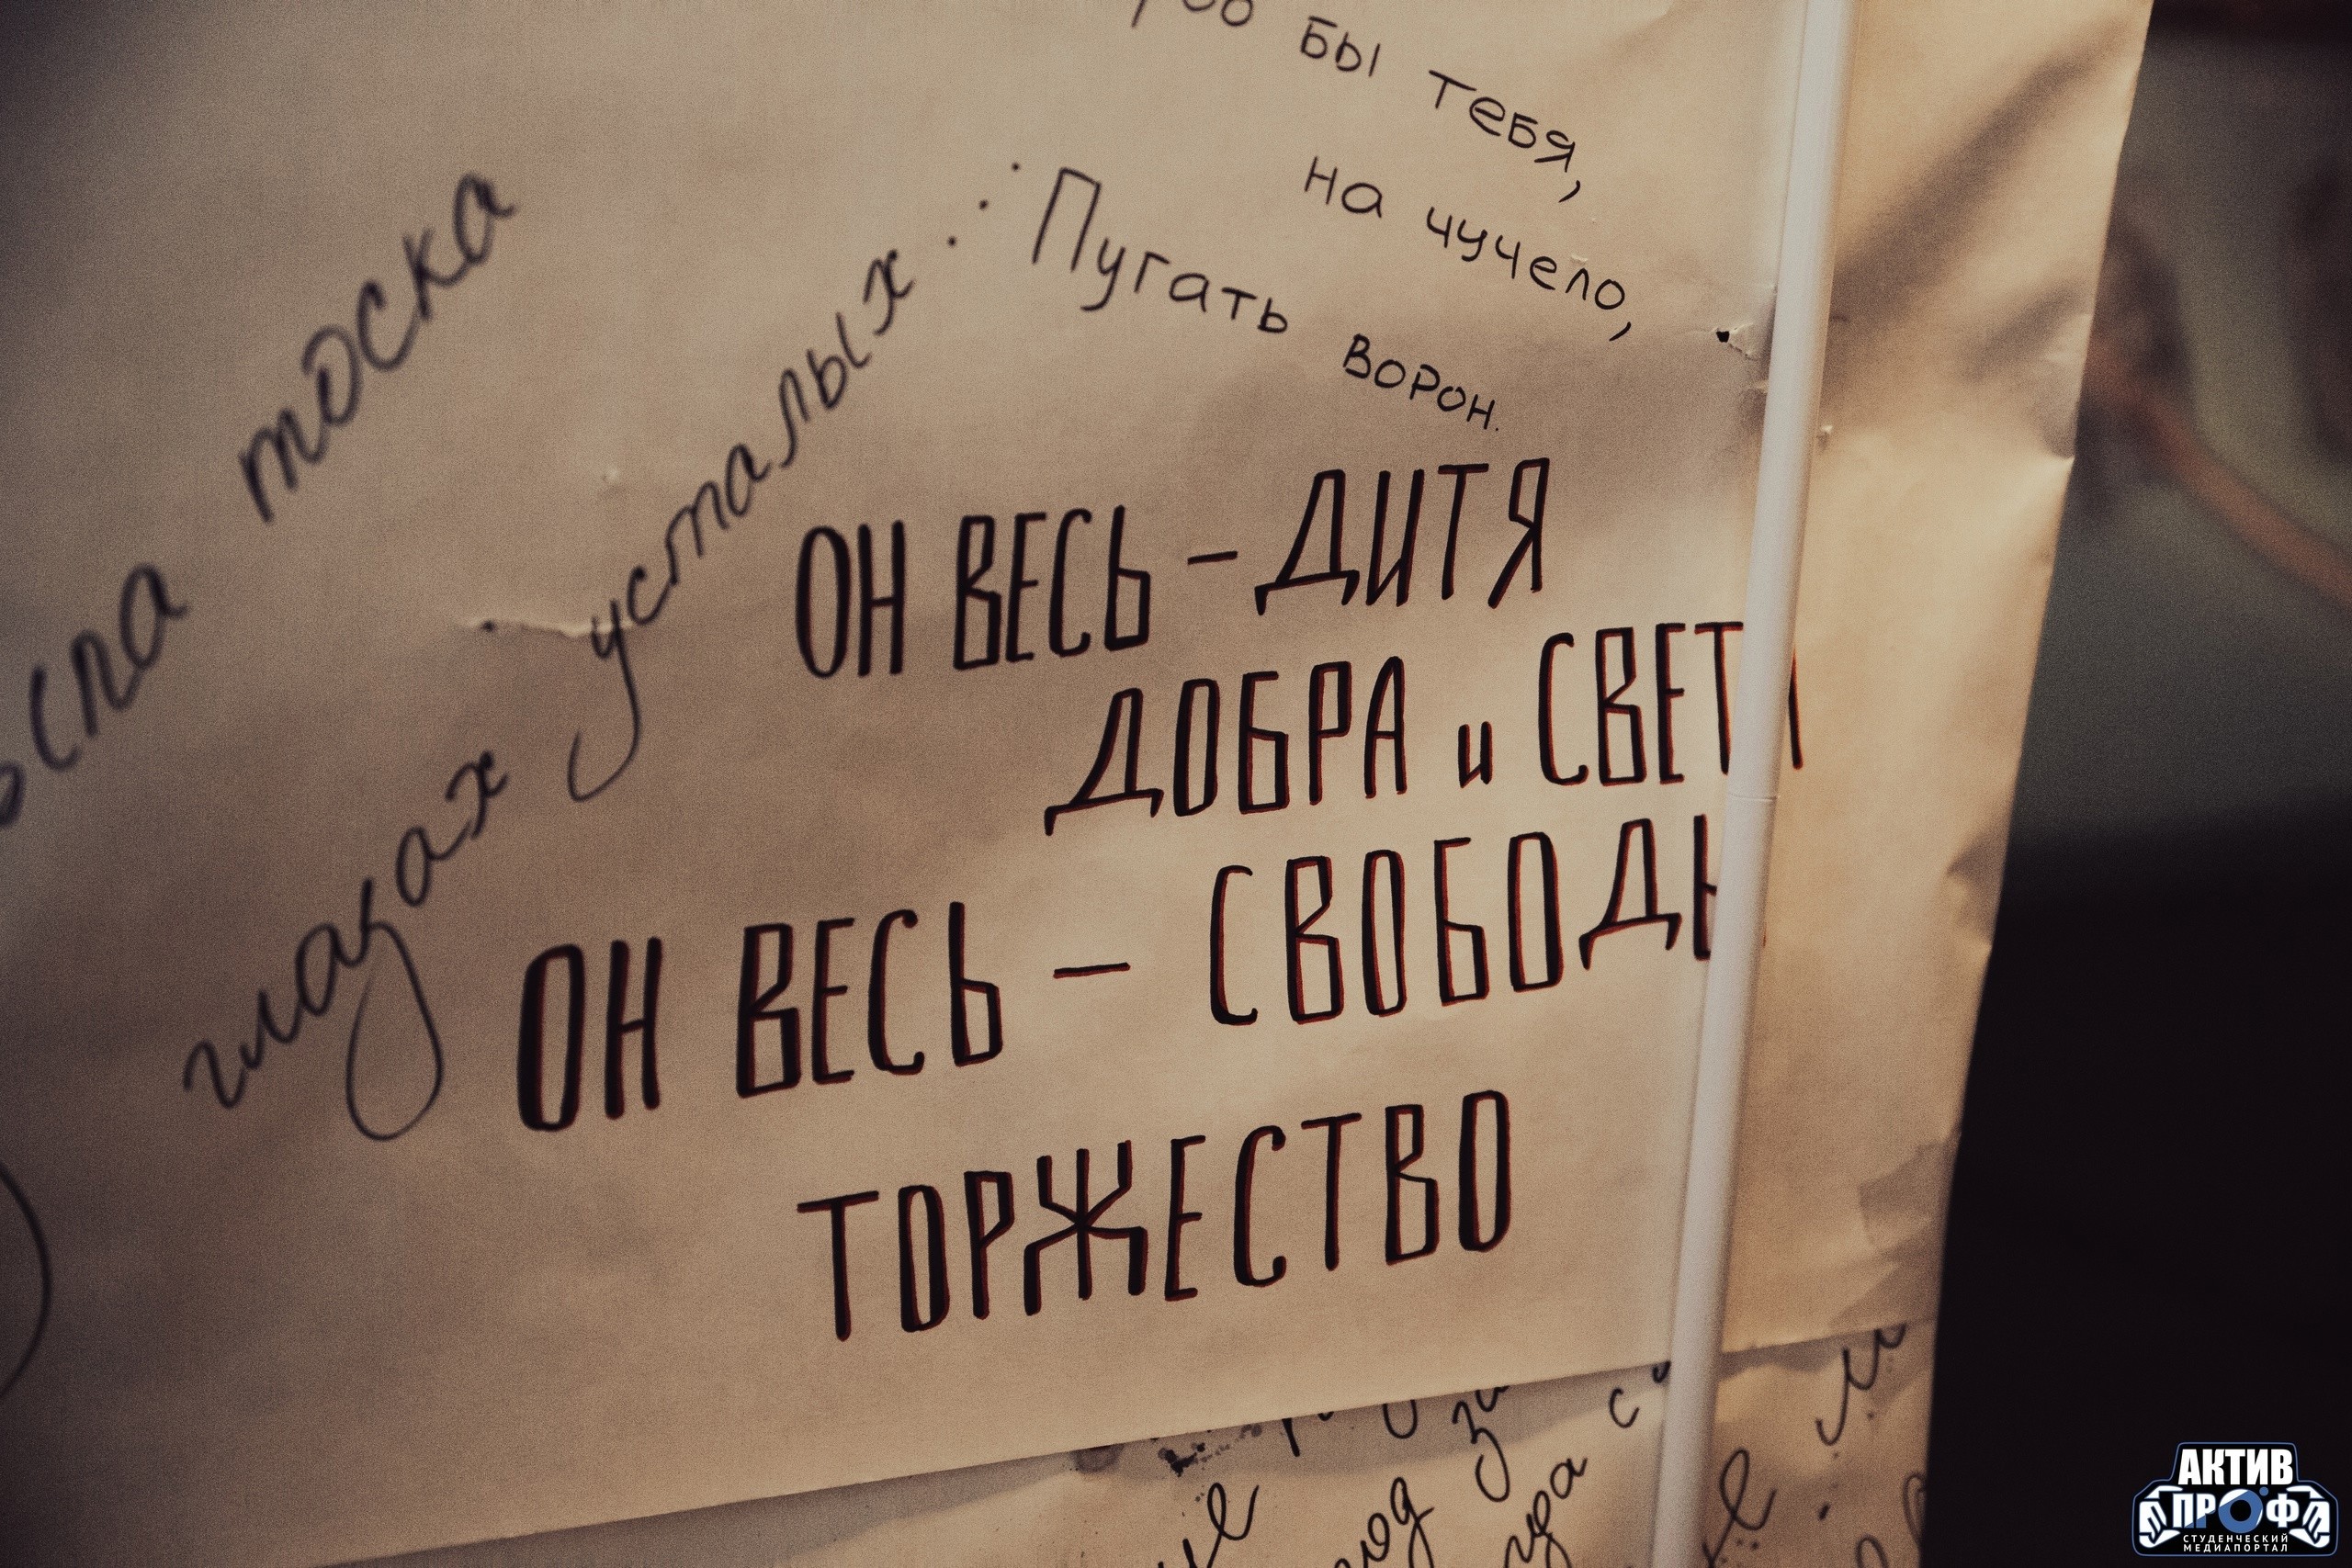 бы тебя,
на чучело,
Пугать ворон.
тоска
глазах усталых...
ОН ВЕСЬ – ДИТЯ
ДОБРА и СВЕТ
ОН ВЕСЬ – СВОБОДЫ
ТОРЖЕСТВО
АКТИВ
ПРОФ
СТУДЕНЧЕСКИЙ
МЕДИАПОРТАЛ